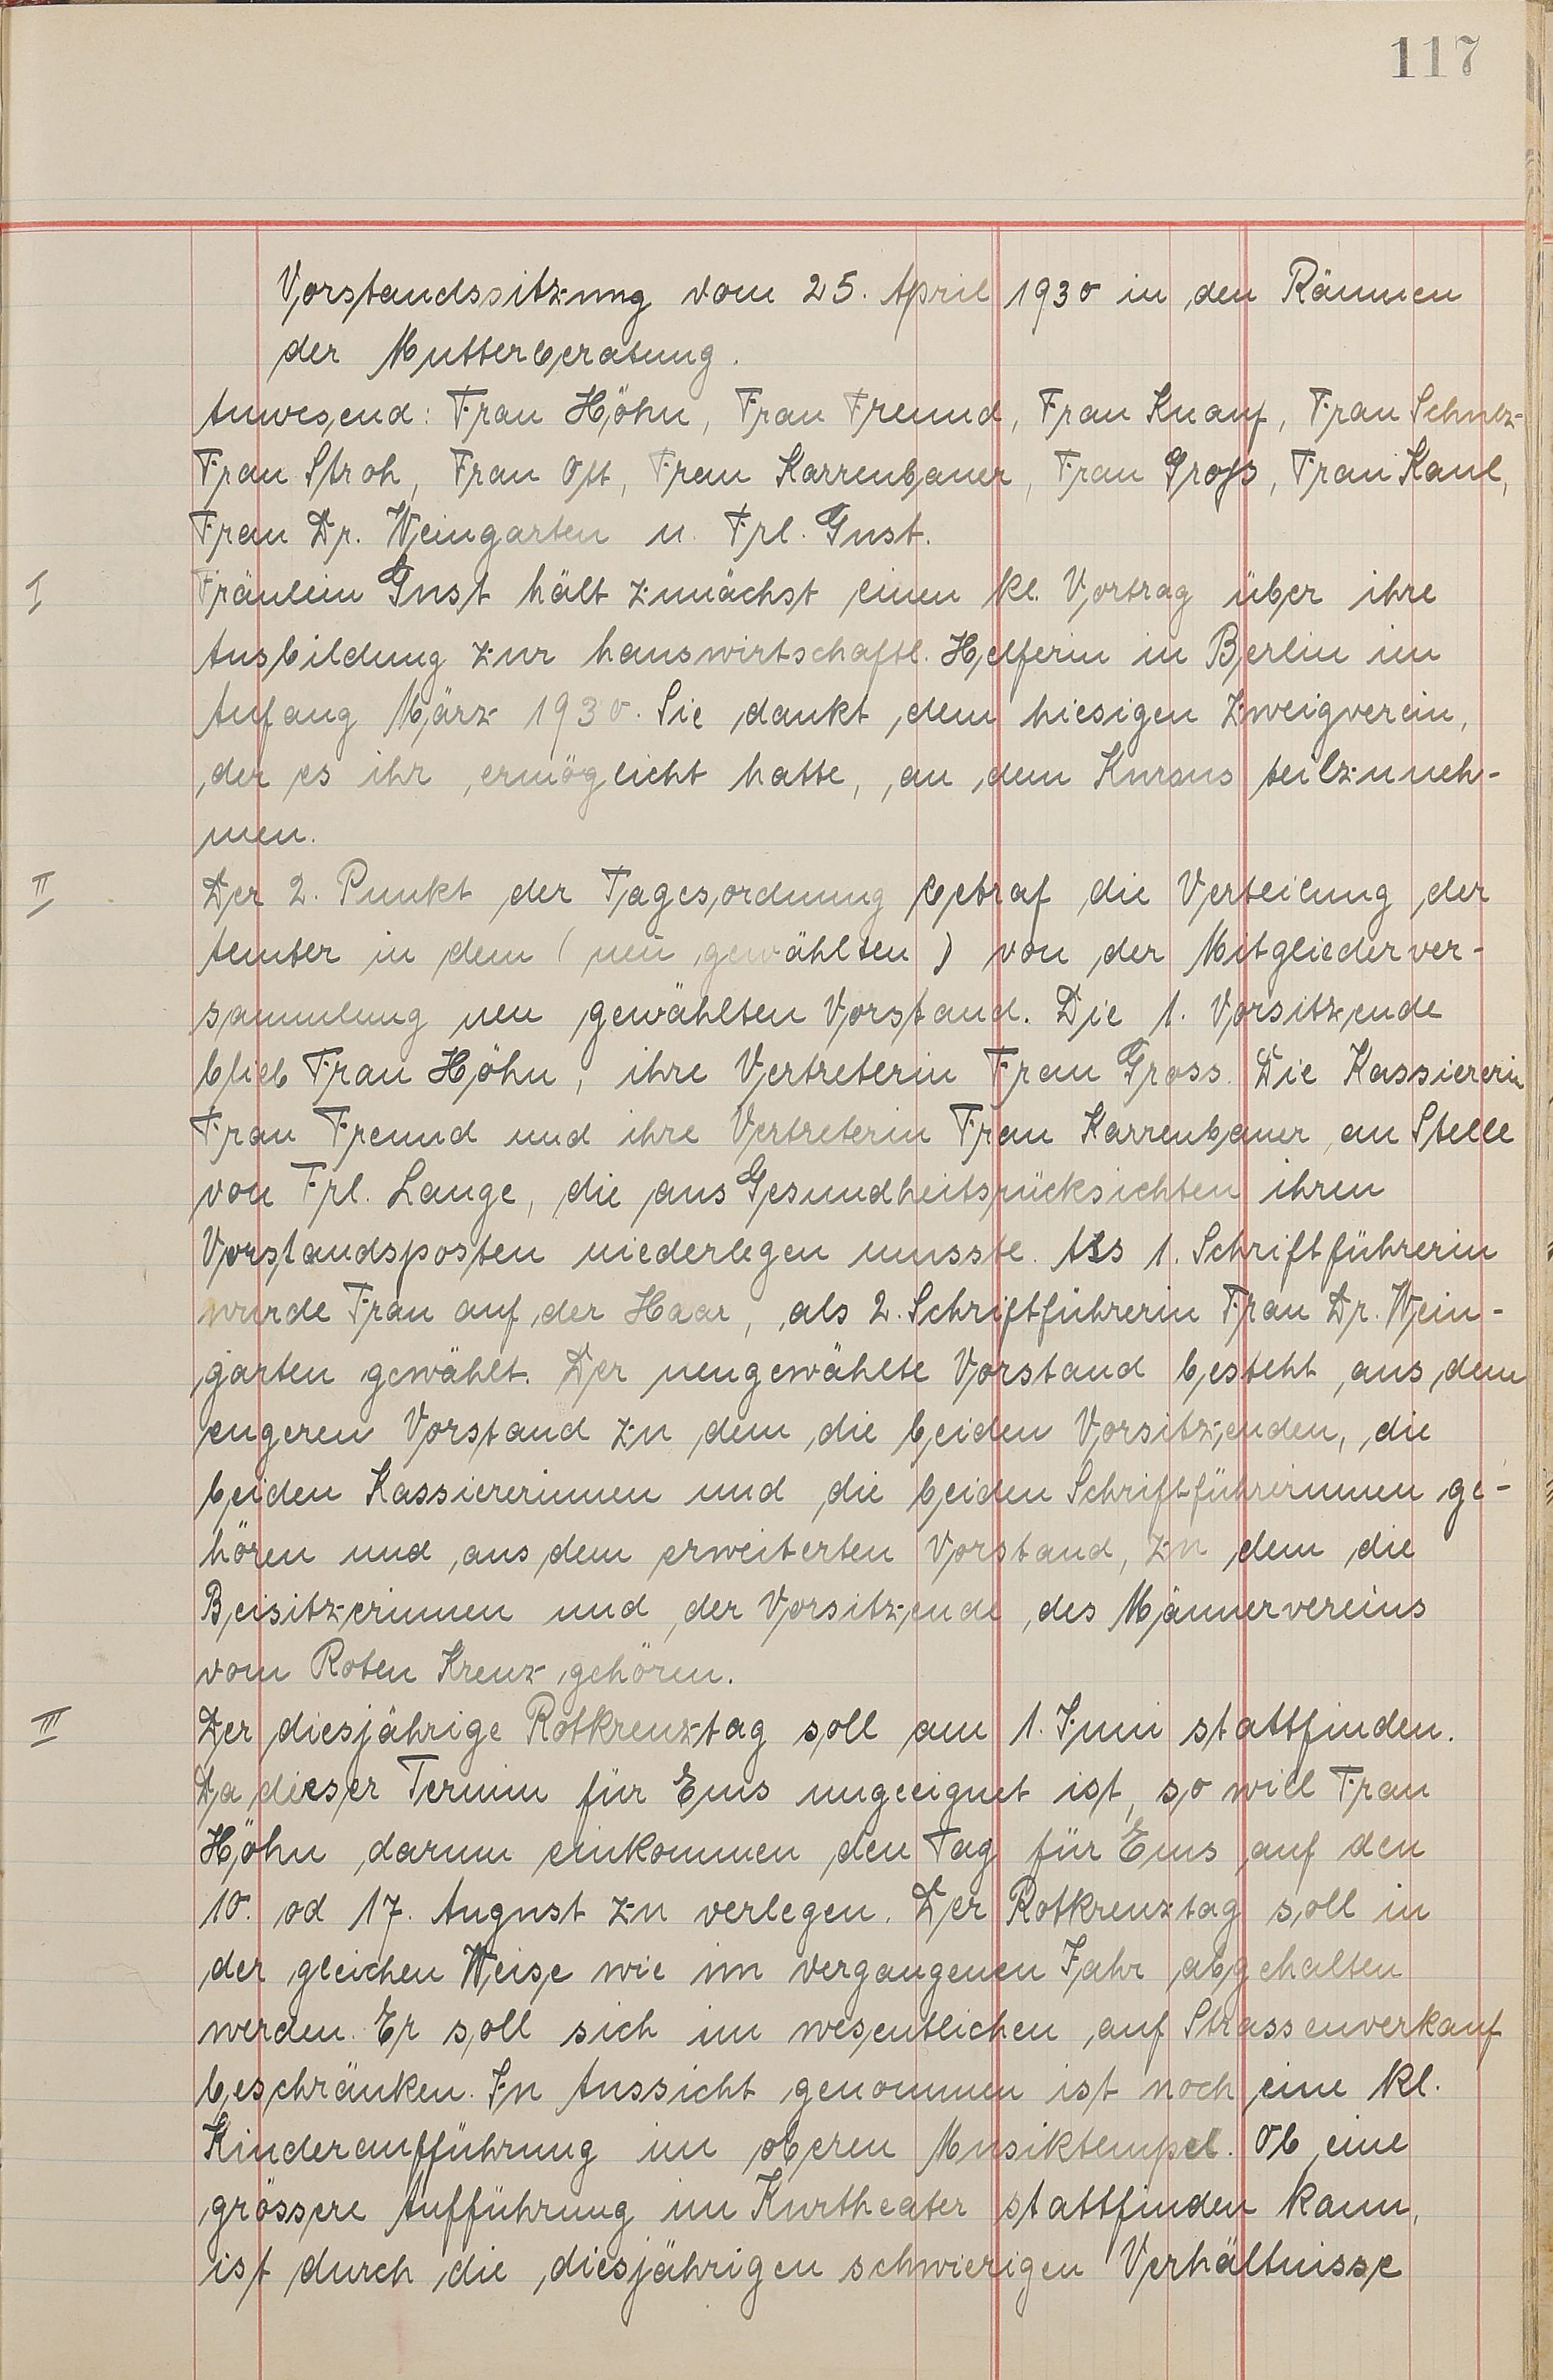 117
Vorstandssitzung vom 25. April 1930 in den Räumen
der Mutterberatung.
Anwesend: Frau Höhn, Frau Freund, Frau Knauf, Frau Schulz-
Frau Stroh, Frau Ott, Frau Karrenbauer, Frau Groß, Frau Kaul,
Frau Dr. Weingarten u. Frl. Gust.
I Fräulein Gust hält zunächst einen kl. Vortrag über ihre
Ausbildung zur hauswirtschaftl. Helferin in Berlin im
Anfang März 1930. Sie dankt dem hiesigen Zweigverein,
der es ihr ermöglicht hatte, an dem Kursus teilzuneh-
men.
II Der 2. Punkt der Tagesordnung betraf die Verteilung der
Aemter in dem (neu gewählten) von der Mitgliederver-
sammlung neu gewählten Vorstand. Die 1. Vorsitzende
blieb Frau Höhn, ihre Vertreterin Frau Gross. Die Kassiererin
Frau Freund und ihre Vertreterin Frau Karrenbauer an Stelle
von Frl. Lange, die aus Gesundheitsrücksichten ihren
Vorstandsposten niederlegen musste. Als 1. Schriftführerin
wurde Frau auf der Haar, als 2. Schriftführerin Frau Dr. Wein-
garten gewählt. Der neugewählte Vorstand besteht aus dem
engeren Vorstand zu dem die beiden Vorsitzenden, die
beiden Kassiererinnen und die beiden Schriftführerinnen ge-
hören und aus dem erweiterten Vorstand, zu dem die
Beisitzerinnen und der Vorsitzende des Männervereins
vom Roten Kreuz gehören.
III Der diesjährige Rotkreuztag soll am 1. Juni stattfinden.
Da dieser Termin für Ems ungeeignet ist, so will Frau
Höhn darum einkommen den Tag für Ems auf den
10. od 17. August zu verlegen. Der Rotkreuztag soll in
der gleichen Weise wie im vergangenen Jahr abgehalten
werden. Er soll sich im wesentlichen auf Strassenverkauf
beschränken. In Aussicht genommen ist noch eine kl.
Kinderaufführung im oberen Musiktempel. Ob eine
grössere Aufführung im Kurtheater stattfinden kann,
ist durch die diesjährigen schwierigen Verhältnisse